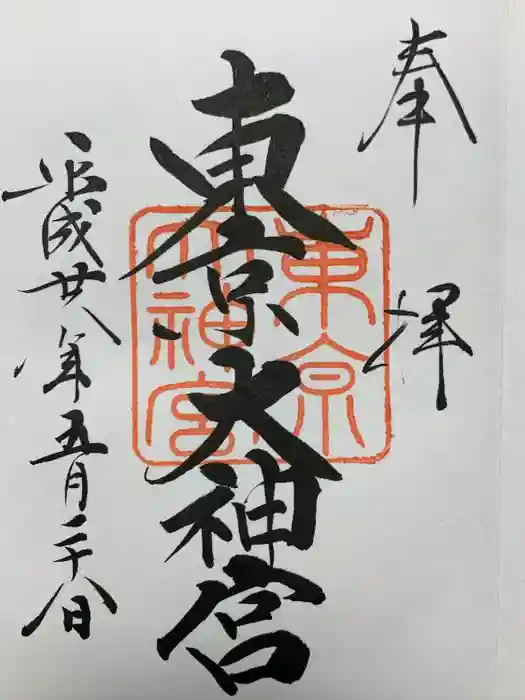 奉拝
東京大神宮
東京
大神宮
平成廿八年五月二十八日